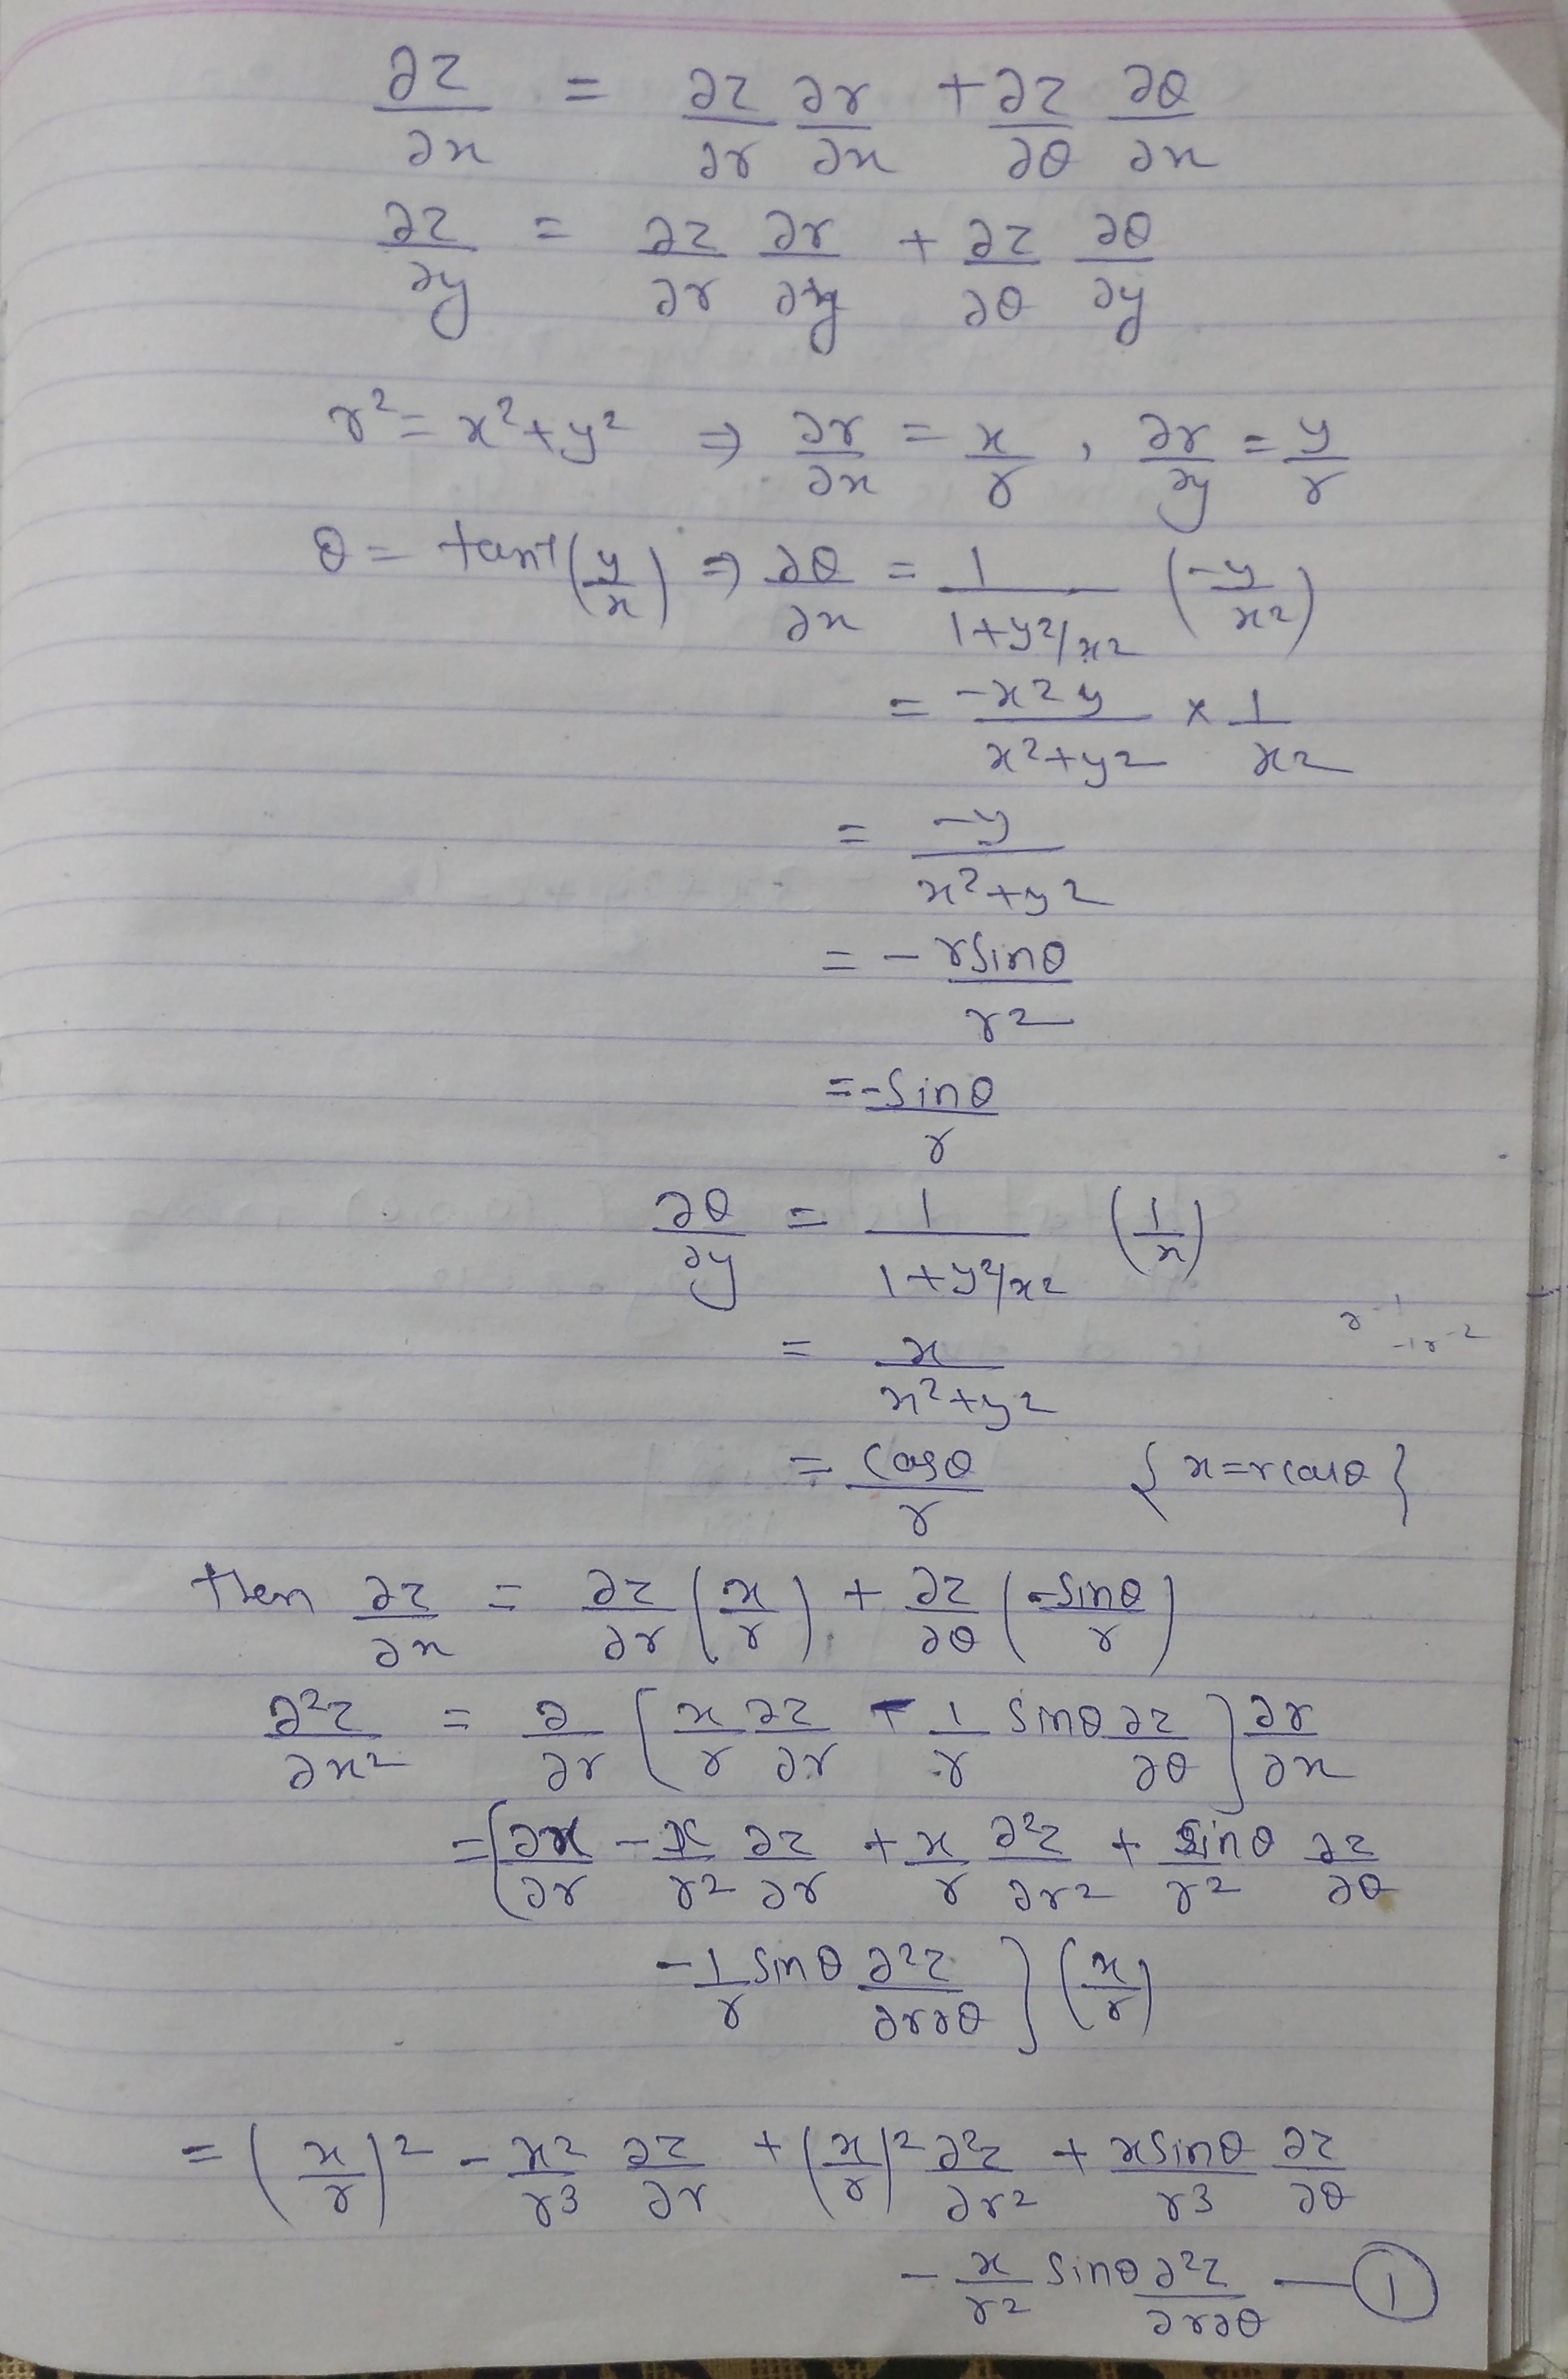 ∂z/∂x = ∂z/∂r ∂r/∂x + ∂z/∂θ ∂θ/∂x
∂z/∂y = ∂z/∂r ∂r/∂y + ∂z/∂θ ∂θ/∂y
r² = x² + y² ⇒ ∂r/∂x = x/r , ∂r/∂y = y/r
θ = tan⁻¹(y/x) ⇒ ∂θ/∂x = 1/(1+y²/x²) (-y/x²)
= -x²y/(x²+y²) × 1/x²
= -y/(x²+y²)
= - rsinθ/r²
= -sinθ/r
∂θ/∂y = 1/(1+y²/x²) (1/x)
r⁻¹ -1r⁻²
= x/(x²+y²)
= cosθ/r {x=rcosθ}
then ∂z/∂x = ∂z/∂r (x/r) + ∂z/∂θ (-sinθ/r)
∂²z/∂x² = ∂/∂r [x/r ∂z/∂r - 1/r sinθ ∂z/∂θ] ∂r/∂x
= [∂x/∂r - x/r² ∂z/∂r + x/r ∂²z/∂r² + sinθ/r² ∂z/∂θ
- 1/r sinθ ∂²z/∂r∂θ] (x/r)
= (x/r)² - x²/r³ ∂z/∂r + (x/r)² ∂²z/∂r² + xsinθ/r³ ∂z/∂θ
- x/r² sinθ ∂²z/∂r∂θ — ①